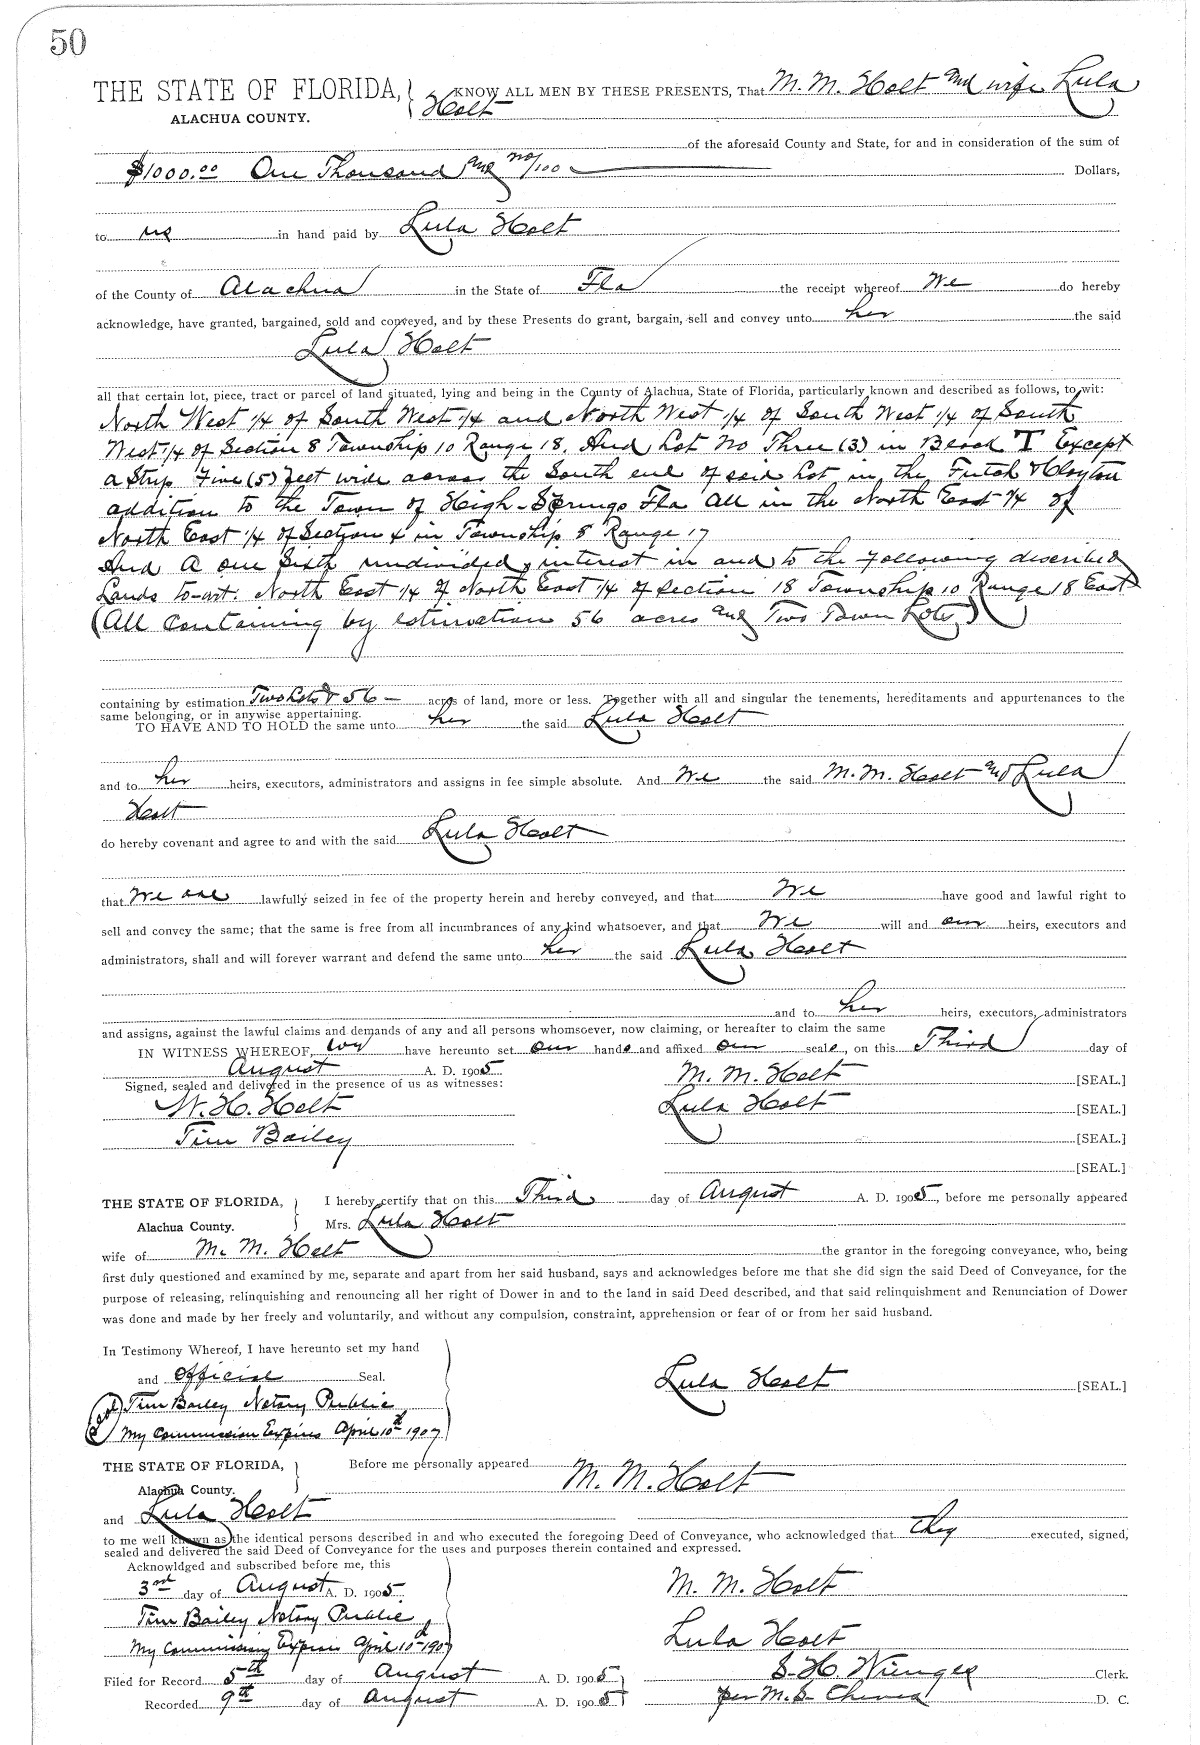 50
THE STATE OF FLORIDA, KNOW ALL MEN BY THESE PRESENTS, That M. M. Holt and wife Lula
ALACHUA COUNTY. Holt
of the aforesaid County and State, for and in consideration of the sum of
$1000.00 One Thousand and no/100 Dollars,
to us in hand paid by Lula Holt
of the County of Alachua in the State of Fla the receipt whereof We do hereby
acknowledge, have granted, bargained, sold and conveyed, and by these Presents do grant, bargain, sell and convey unto her the said
Lula Holt
all that certain lot, piece, tract or parcel of land situated, lying and being in the County of Alachua, State of Florida, particularly known and described as follows, to wit:
North West 1/4 of South West 1/4 and North West 1/4 of South West 1/4 of South
West 1/4 of Section 8 Township 10 Range 18. And Lot No Three (3) in Block T Except
a Strip Five (5) feet wide across the South end of said Lot in the Futch & Clayton
addition to the Town of High-Springs Fla All in the North East 1/4 of
North East 1/4 of Section 4 in Township 8 Range 17
And A one Sixth undivided interest in and to the following described
Lands to-wit: North East 1/4 of North East 1/4 of Section 18 Township 10 Range 18 East
(All Containing by estimation 56 acres and Two Town Lots)
containing by estimation Two Lots & 56 acres of land, more or less. Together with all and singular the tenements, hereditaments and appurtenances to the
same belonging, or in anywise appertaining.
TO HAVE AND TO HOLD the same unto her the said Lula Holt
and to her heirs, executors, administrators and assigns in fee simple absolute. And We the said M. M. Holt and Lula
Holt
do hereby covenant and agree to and with the said Lula Holt
that We are lawfully seized in fee of the property herein and hereby conveyed, and that We have good and lawful right to
sell and convey the same; that the same is free from all incumbrances of any kind whatsoever, and that We will and our heirs, executors and
administrators, shall and will forever warrant and defend the same unto her the said Lula Holt
and to her heirs, executors, administrators
and assigns, against the lawful claims and demands of any and all persons whomsoever, now claiming, or hereafter to claim the same
IN WITNESS WHEREOF, we have hereunto set our hands and affixed our seals, on this Third day of
August A. D. 1905. M. M. Holt [SEAL.]
Signed, sealed and delivered in the presence of us as witnesses:
W. H. Holt Lula Holt [SEAL.]
Tim Bailey [SEAL.]
[SEAL.]
THE STATE OF FLORIDA, I hereby certify that on this Third day of August A. D. 1905, before me personally appeared
Alachua County. Mrs. Lula Holt
wife of M. M. Holt the grantor in the foregoing conveyance, who, being
first duly questioned and examined by me, separate and apart from her said husband, says and acknowledges before me that she did sign the said Deed of Conveyance, for the
purpose of releasing, relinquishing and renouncing all her right of Dower in and to the land in said Deed described, and that said relinquishment and Renunciation of Dower
was done and made by her freely and voluntarily, and without any compulsion, constraint, apprehension or fear of or from her said husband.
In Testimony Whereof, I have hereunto set my hand
and official Seal. Lula Holt [SEAL.]
(Seal) Tim Bailey Notary Public
My Commission Expires April 10th 1907
THE STATE OF FLORIDA, Before me personally appeared M. M. Holt
Alachua County.
and Lula Holt
to me well known as the identical persons described in and who executed the foregoing Deed of Conveyance, who acknowledged that they executed, signed,
sealed and delivered the said Deed of Conveyance for the uses and purposes therein contained and expressed.
Acknowldged and subscribed before me, this
3rd day of August A. D. 1905. M. M. Holt
Tim Bailey Notary Public
My Commission Expires April 10th 1907 Lula Holt
Filed for Record 5th day of August A. D. 1905 S. H. Wienges Clerk.
Recorded 9th day of August A. D. 1905 per M. S. D. C.